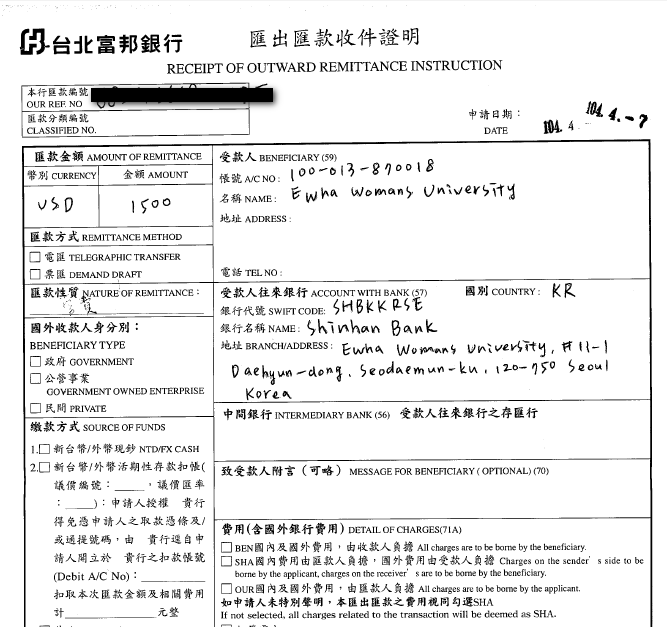 台北富邦銀行
匯出匯款收件證明
RECEIPT OF OUTWARD REMITTANCE INSTRUCTION
本行匯款編號
OUR REF. NO
匯款分類編號
CLASSIFIED NO.
申請日期:
DATE
104. 4. -7
104. 4
匯款金額 AMOUNT OF REMITTANCE
幣別 CURRENCY 金額 AMOUNT
USD 1500
匯款方式 REMITTANCE METHOD
□ 電匯 TELEGRAPHIC TRANSFER
□ 票匯 DEMAND DRAFT
匯款性質 NATURE OF REMITTANCE:
國外收款人身分別:
BENEFICIARY TYPE
□ 政府 GOVERNMENT
□ 公營事業
GOVERNMENT OWNED ENTERPRISE
□ 民間 PRIVATE
繳款方式 SOURCE OF FUNDS
1.□ 新台幣/外幣現鈔 NTD/FX CASH
2.□ 新台幣/外幣活期性存款扣帳(
議價編號:_____,議價匯率
:_____):申請人授權 貴行
得免憑申請人之取款憑條及/
或通提號碼,由 貴行逕自申
請人開立於 貴行之扣款帳號
(Debit A/C No):
扣取本次匯款金額及相關費用
計_________元整
受款人 BENEFICIARY (59)
帳號 A/C NO: 100-013-870018
名稱 NAME: Ewha Womans University
地址 ADDRESS:
電話 TEL NO:
受款人往來銀行 ACCOUNT WITH BANK (57) 國別 COUNTRY: KR
銀行代號 SWIFT CODE: SHBKKRSE
銀行名稱 NAME: Shinhan Bank
地址 BRANCH/ADDRESS: Ewha Womans University, #11-1
Daehyun-dong, Seodaemun-ku, 120-750 Seoul
Korea
中間銀行 INTERMEDIARY BANK (56) 受款人往來銀行之存匯行
致受款人附言(可略) MESSAGE FOR BENEFICIARY ( OPTIONAL) (70)
費用(含國外銀行費用) DETAIL OF CHARGES(71A)
□ BEN國內及國外費用,由收款人負擔 All charges are to be borne by the beneficiary.
□ SHA國內費用由匯款人負擔,國外費用由受款人負擔 Charges on the sender's side to be
borne by the applicant, charges on the receiver's are to be borne by the beneficiary.
□ OUR國內及國外費用,由匯款人負擔 All charges are to be borne by the applicant.
如申請人未特別聲明,本匯出匯款之費用視同勾選SHA
If not selected, all charges related to the transaction will be deemed as SHA.